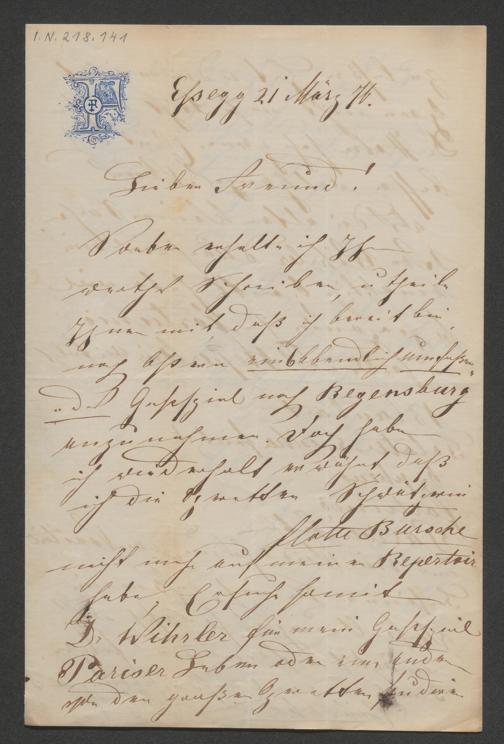 I.N. 218.141
Essegg 21 März 76.
Lieber Freund!
Soeben erhalte ich Ihr
werthes Schreiben, u theile
Ihnen mit daß ich bereit bin,
nach Ostern ein
Gastspiel nach Regensburg
anzunehmen. Doch habe
ich wiederholt erwähnt daß
ich die Operetten
flotte Bursche
nicht mehr auf meinem Repertoir
habe, Ersuche somit
D. Wihrler für mein Gastspiel
Pariser Leben oder eine andere
von den großen Operetten